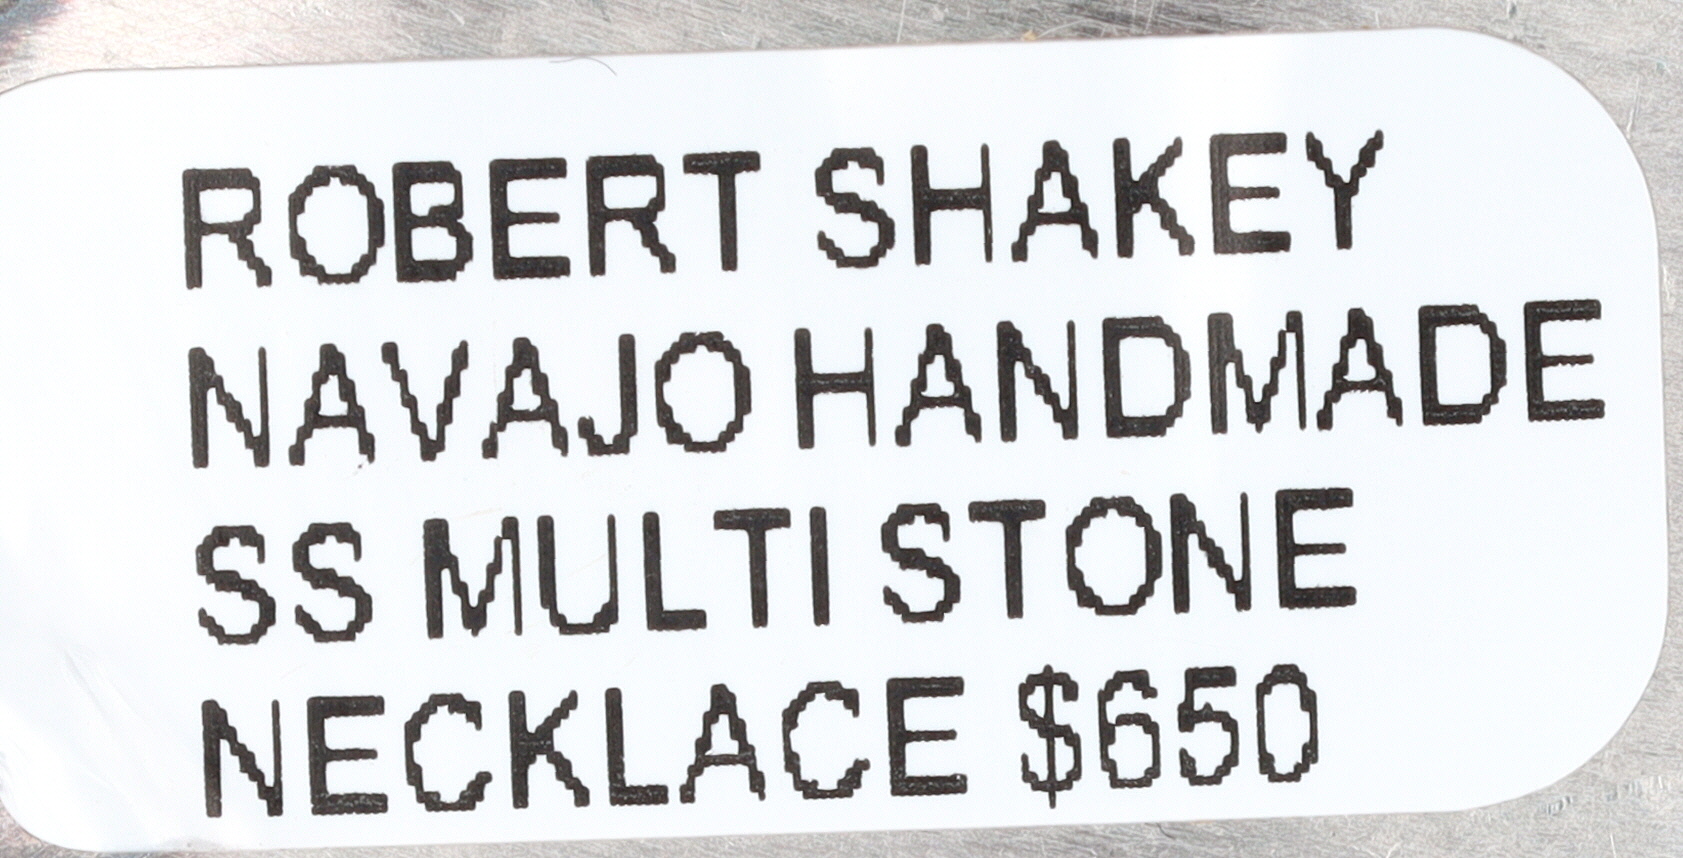 ROBERT SHAKEY
NAVAJO HANDMADE
SS MULTI STONE
NECKLACE $650